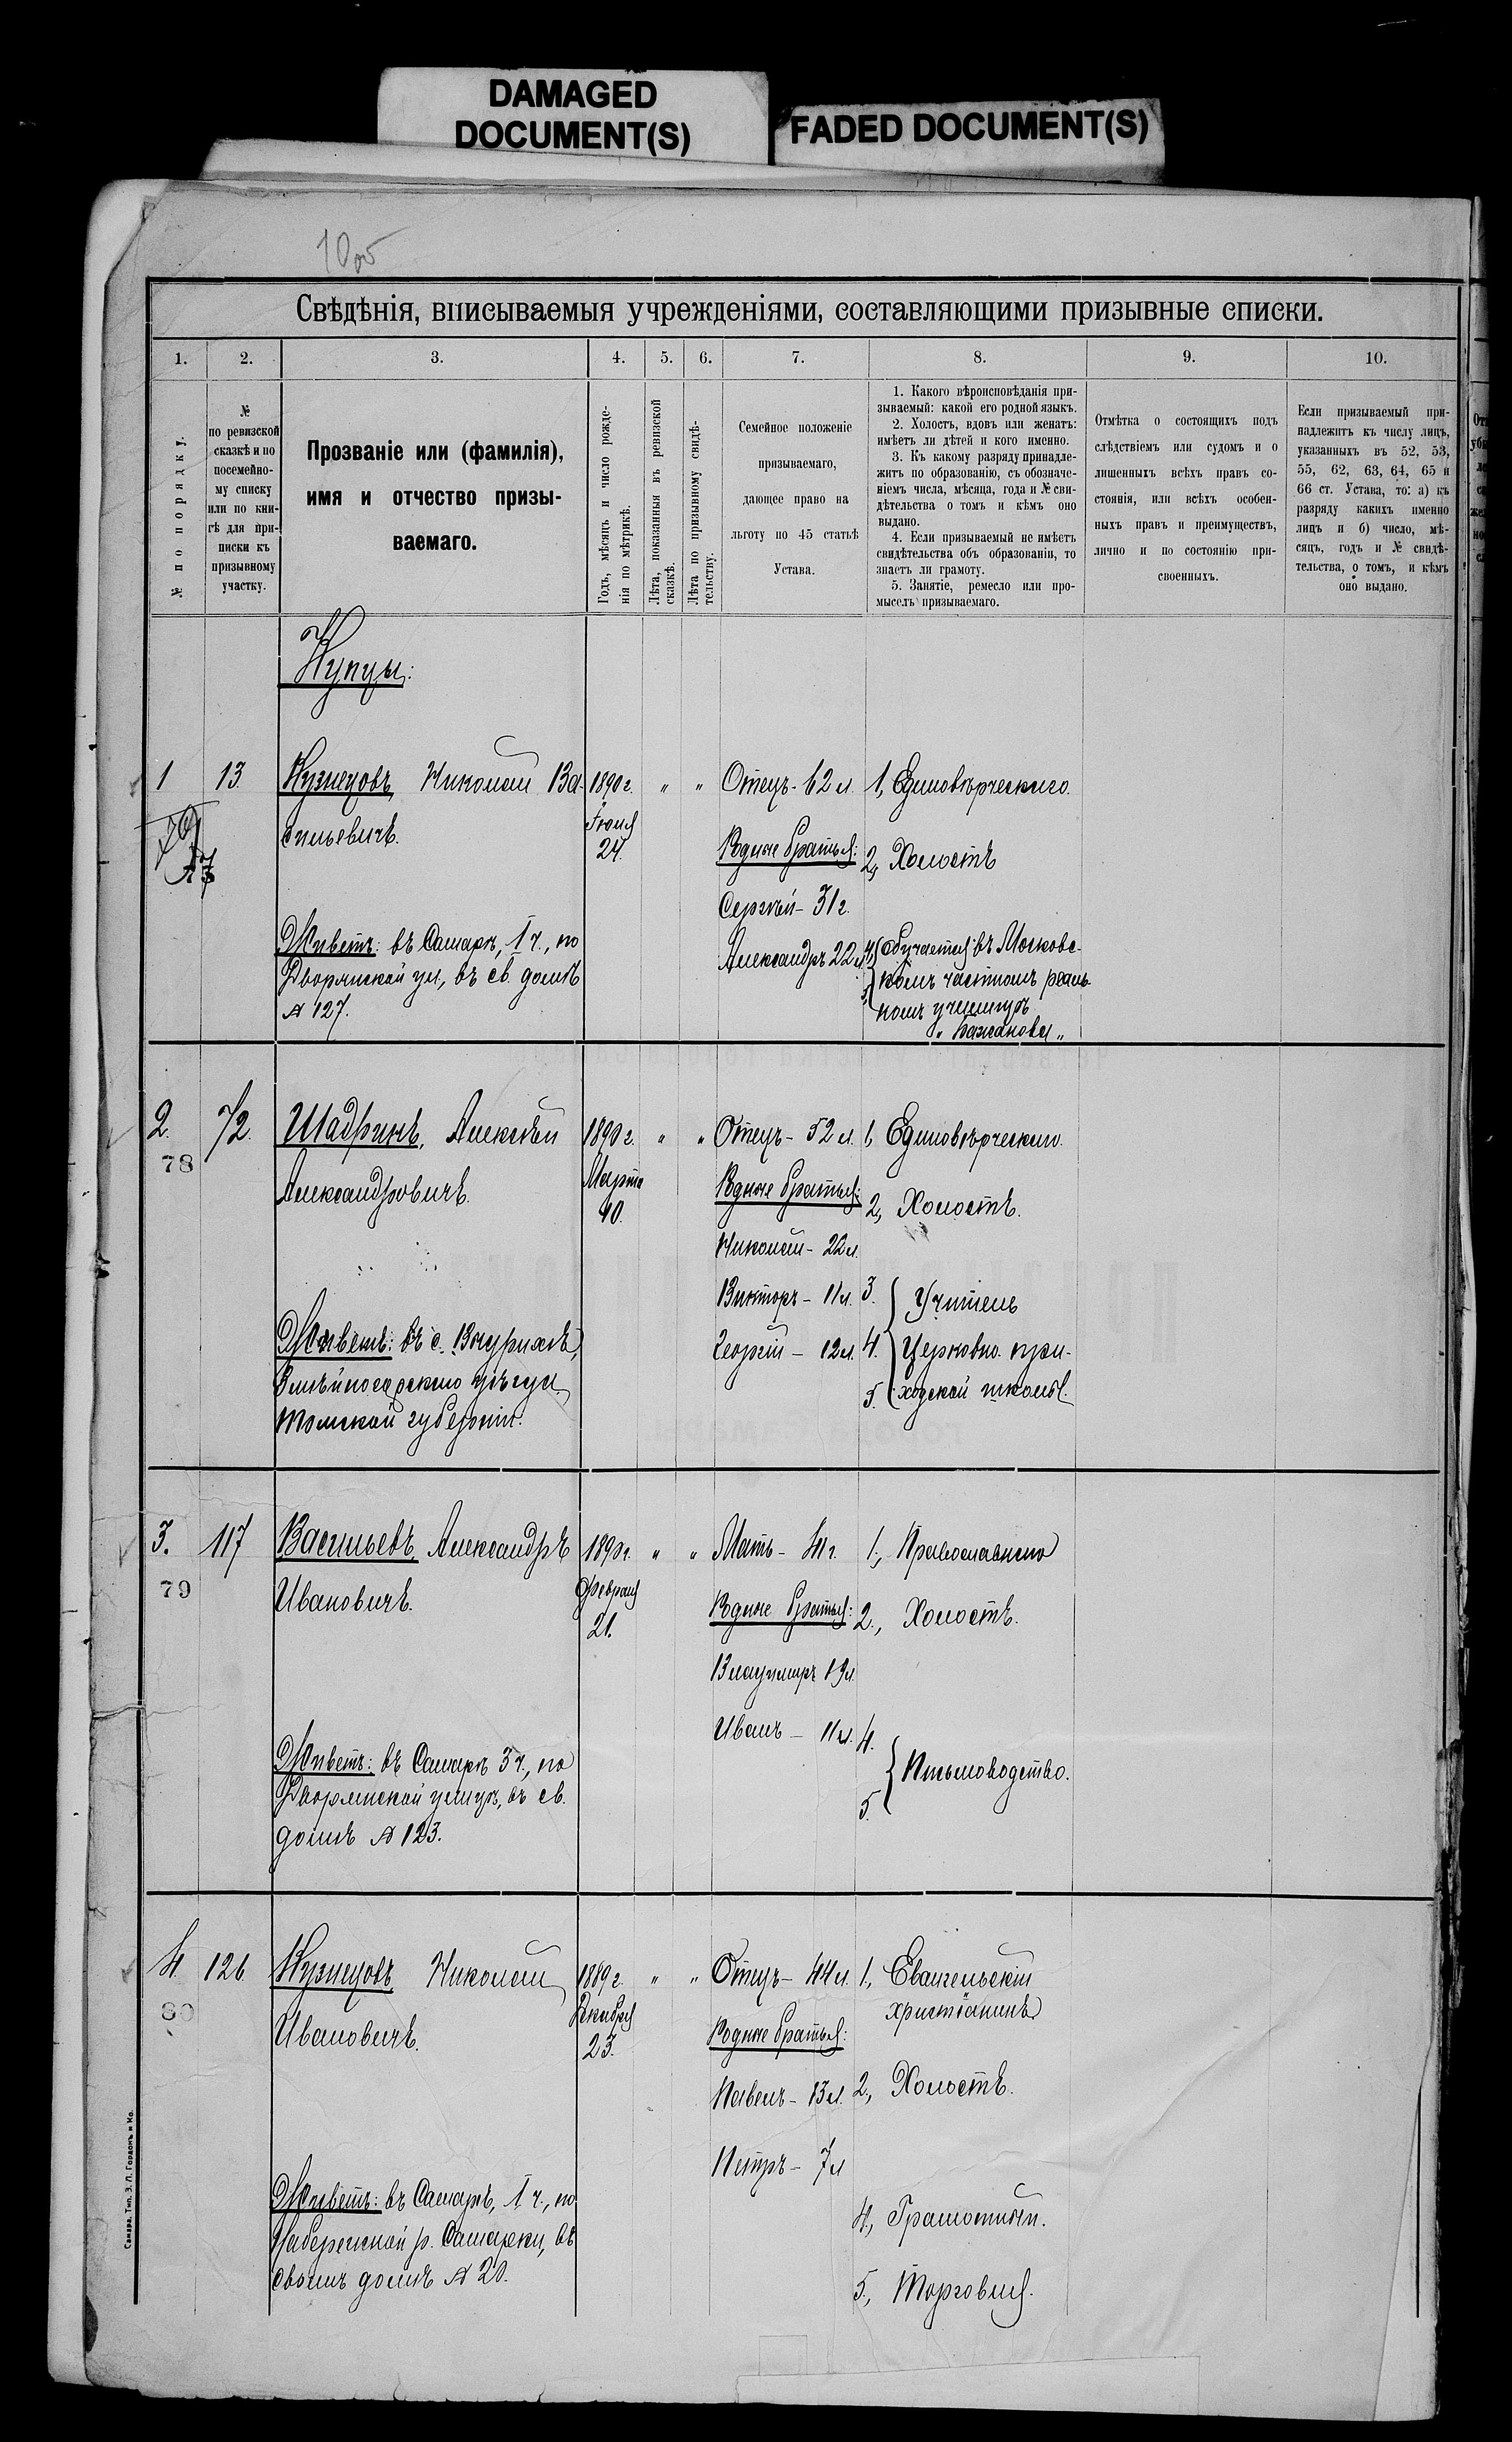 DAMAGED
DOCUMENT(S)
FADED DOCUMENT(S)
10 об
Свѣдѣнія, вписываемыя учрежденіями, составляющими призывные списки.
1.
2.
3.
4.
5.
6.
7.
8.
9.
10.
№ по порядку.
№
по ревизской
сказкѣ и по
посемейно-
му списку
или по кни-
гѣ для при-
писки къ
призывному
участку.
Прозваніе или (фамилія),
имя и отчество призы-
ваемаго.
Годъ, мѣсяцъ и число рожде-
нія по метрикѣ.
Лѣта, показанныя въ ревизской
сказкѣ.
Лѣта по призывному свидѣ-
тельству.
Семейное положеніе
призываемаго,
дающее право на
льготу по 45 статьѣ
Устава.
1. Какого вѣроисповѣданія при-
зываемый: какой его родной языкъ.
2. Холостъ, вдовъ или женатъ:
имѣетъ ли дѣтей и кого именно.
3. Къ какому разряду принадле-
житъ по образованію, съ обозначе-
ніемъ числа, мѣсяца, года и № сви-
дѣтельства о томъ и кѣмъ оно
выдано.
4. Если призываемый не имѣетъ
свидѣтельства объ образованіи, то
знаетъ ли грамоту.
5. Занятіе, ремесло или про-
мыселъ призываемаго.
Отмѣтка о состоящихъ подъ
слѣдствіемъ или судомъ и о
лишенныхъ всѣхъ правъ со-
стоянія, или всѣхъ особен-
ныхъ правъ и преимуществъ,
лично и по состоянію при-
своенныхъ.
Если призываемый при-
надлежитъ къ числу лицъ,
указанныхъ въ 52, 53,
55, 62, 63, 64, 65 и
66 ст. Устава, то: а) къ
разряду какихъ именно
лицъ и б) число, мѣ-
сяцъ, годъ и № свидѣ-
тельства, о томъ, и кѣмъ
оно выдано.
Купцы:
1
13.
Кузнецовъ, Николай Ва-
сильевичъ.
Живетъ: въ Самарѣ, 1 ч., по
Дворянской ул., въ св. домѣ
№ 127.
1890 г.
Іюня
24.
" "
Отецъ - 62 л.
Родные братья:
Сергѣй - 31 г.
Александръ 22 л.
1, Единовѣрческаго.
2, Холостъ
4, Обучается въ Московс-
комъ частномъ реаль-
номъ училищѣ
5,
" Бажанова "
2.
78
72.
Шадринъ, Алексѣй
Александровичъ.
Живетъ: въ с.
Змѣиногорскаго уѣзда,
Томской губерніи.
1890 г.
Марта
10.
" "
Отецъ - 52 л.
Родные братья:
Николай - 22 л.
Викторъ - 11 л.
Георгій - 12 л.
1, Единовѣрческаго.
2, Холостъ.
3. Учитель
4. Церковно-при-
5. ходской школы.
3.
79
117
Васильевъ, Александръ
Ивановичъ.
Живетъ: въ Самарѣ 3 ч., по
Дворянской улицѣ, въ св.
домѣ № 123.
1890 г.
Февраля
21.
" "
Мать - 41 г.
Родные братья:
Владиміръ 19 л.
Иванъ - 11 л.
1., Православнаго
2., Холостъ.
4.
Письмоводство.
5.
4.
80
126
Кузнецовъ, Николай
Ивановичъ.
Живетъ: въ Самарѣ, 1 ч., по
Набережной р. Самарки, въ
своемъ домѣ № 20.
1889 г.
Декабря
23.
" "
Отецъ - 44 л.
Родные братья:
Павелъ - 13 л.
Петръ - 7 л
1., Евангельскій
христіанинъ
2., Холостъ.
4., Грамотный.
5., Торговля.
Самара, Тип. З. Л. Гордонъ и Ко.